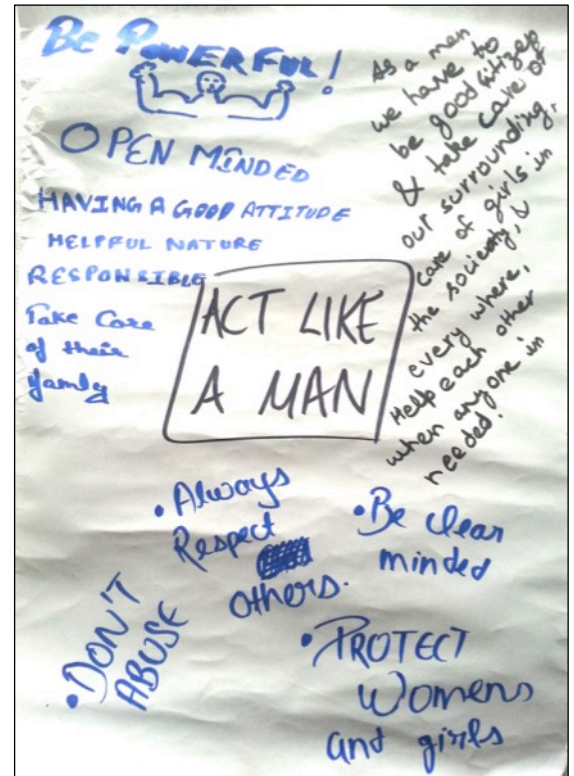 Be POWERFUL!
OPEN MINDED
HAVING A GOOD ATTITUDE
HELPFUL NATURE
RESPONSIBLE
Take Care
of their
family
As a men
we have to
be good citizen
& take care of
our surrounding,
care of girls in
the society, &
every where,
Help each other
when anyone in
needed!
ACT LIKE
A MAN
• Always
Respect
others.
• Be clear
minded
• DON'T
ABUSE
• PROTECT
Womens
and girls